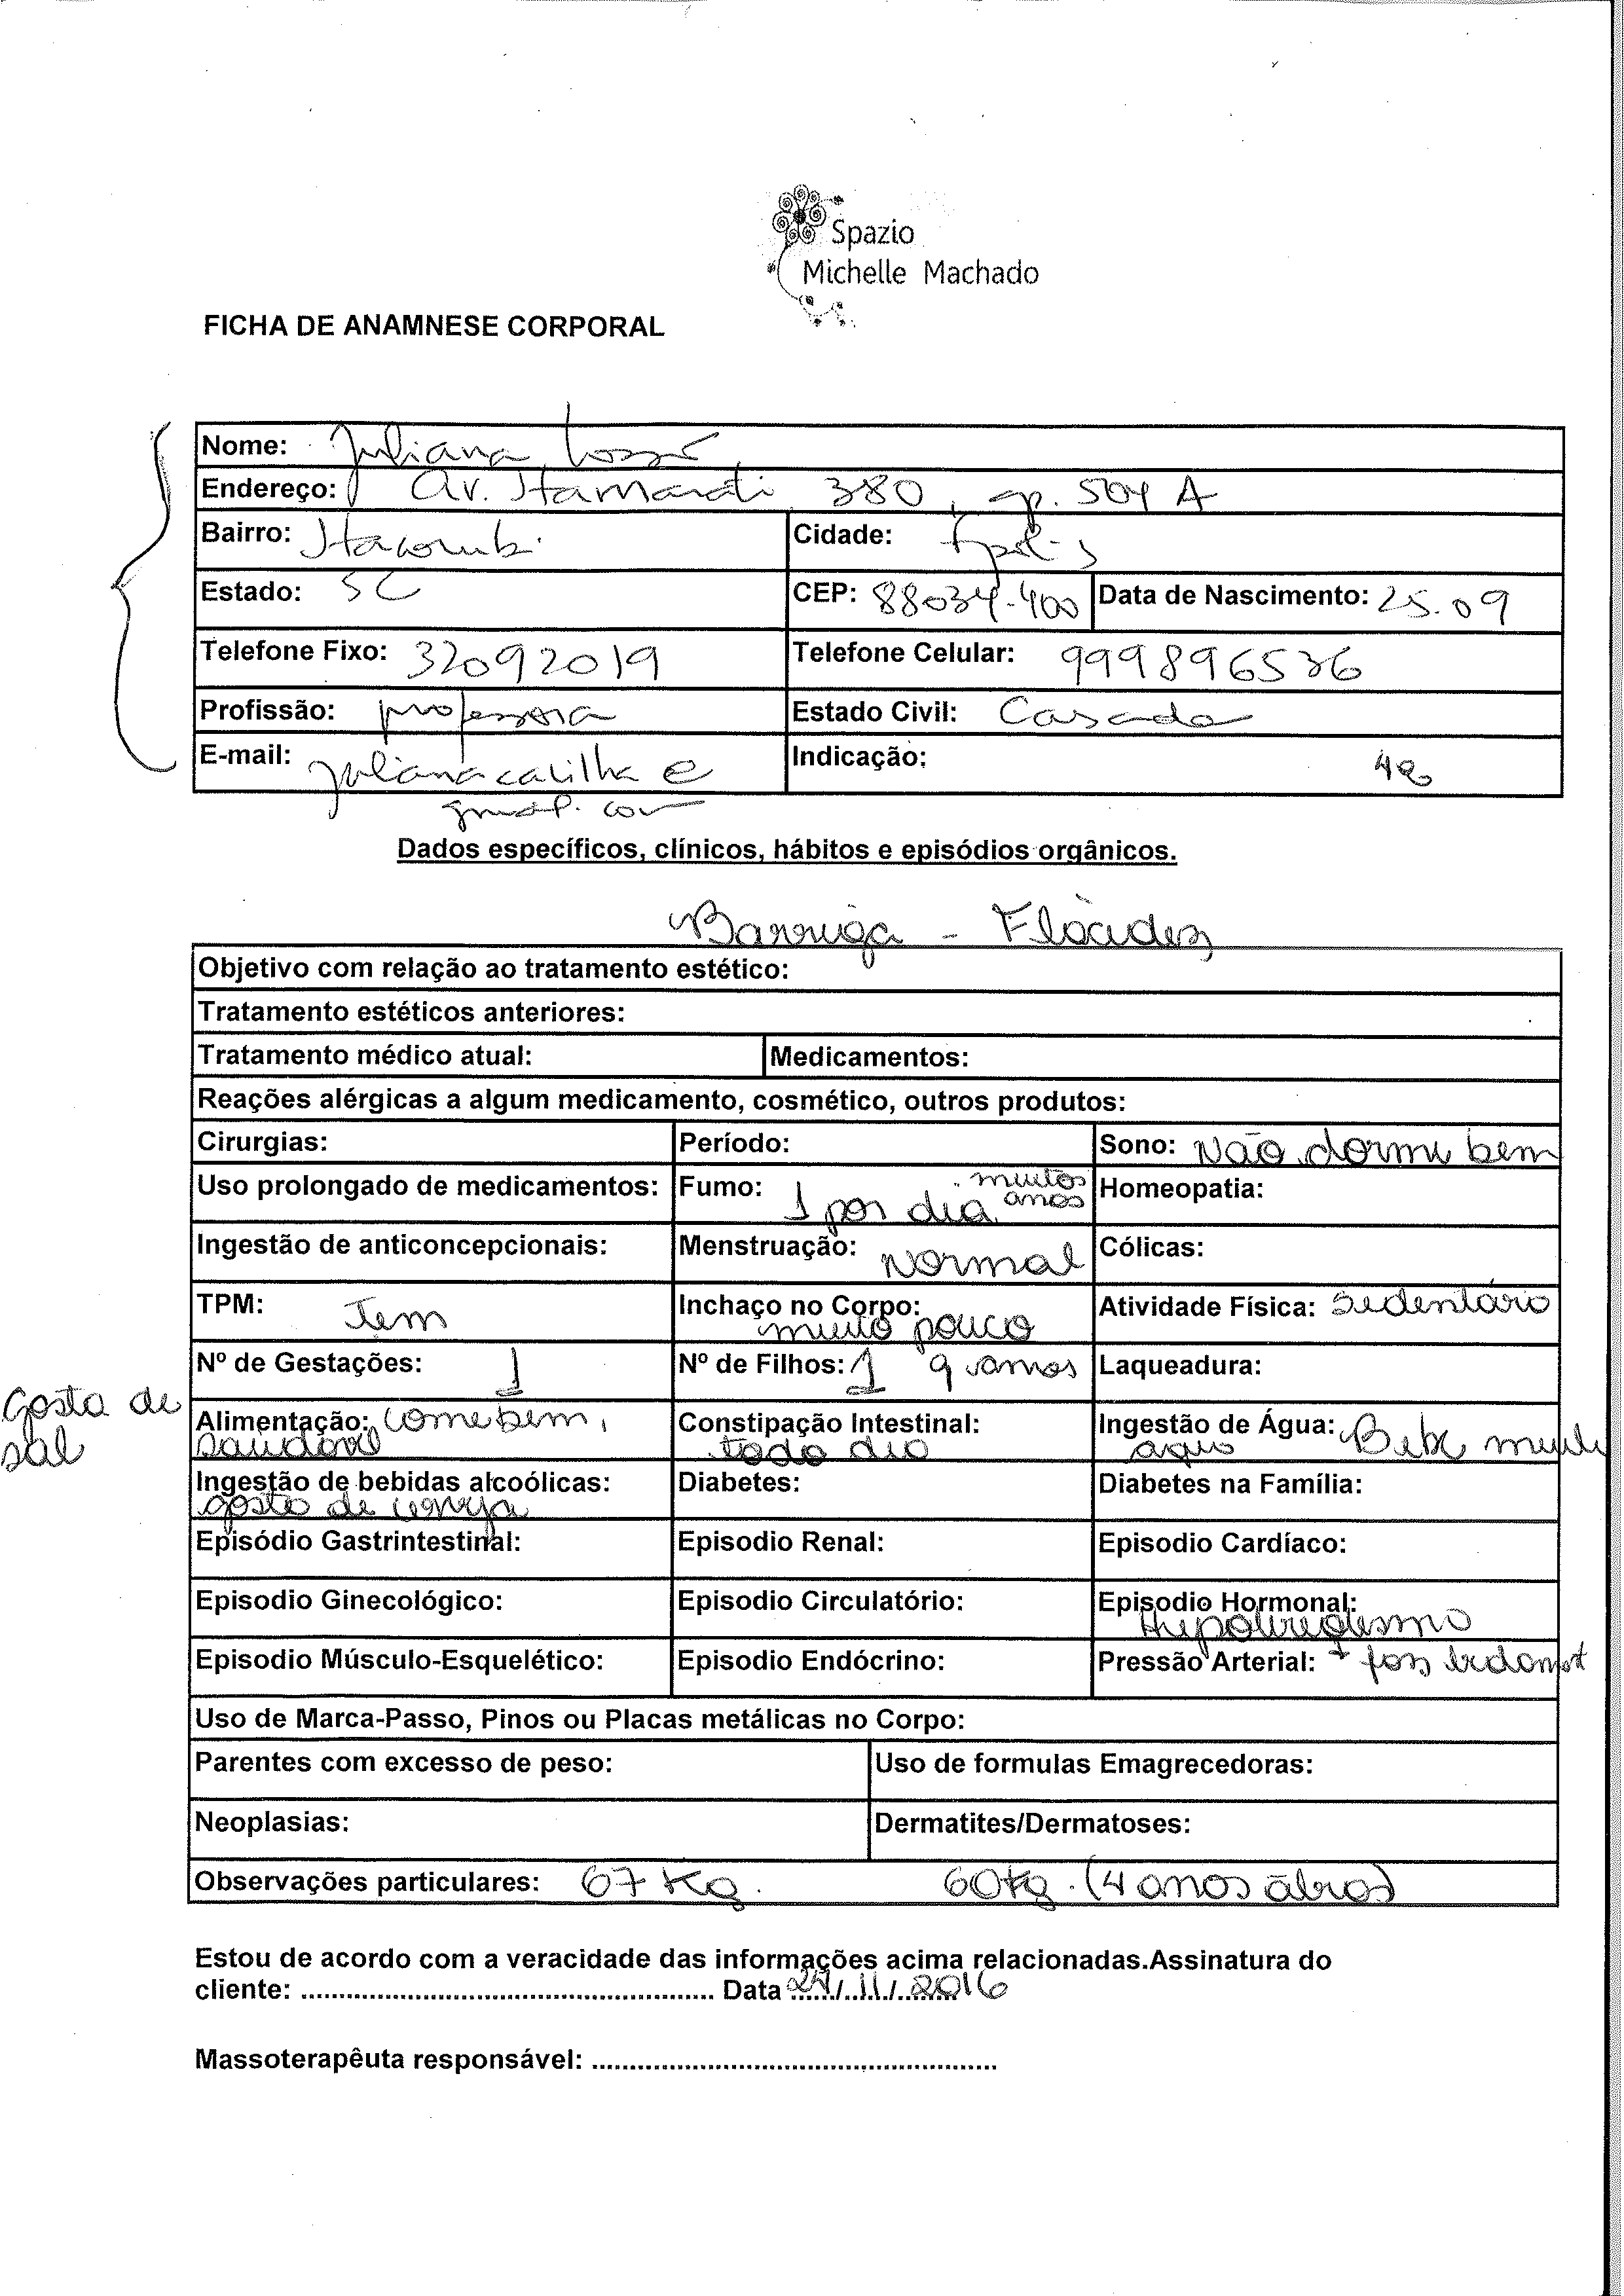 Spazio
Michelle Machado
FICHA DE ANAMNESE CORPORAL
Nome: Juliana
Endereço: Av. Itamarati 380, ap. 504 A
Bairro: Itacorubi Cidade: Fpolis
Estado: SC CEP: 88034-400 Data de Nascimento: 25.09
Telefone Fixo: 32092019 Telefone Celular: 999896536
Profissão: professora Estado Civil: Casada
E-mail: julianacarilha@ Indicação: 42
gmail.com
Dados específicos, clínicos, hábitos e episódios orgânicos.
Barriga - Flacidez
Objetivo com relação ao tratamento estético:
Tratamento estéticos anteriores:
Tratamento médico atual: Medicamentos:
Reações alérgicas a algum medicamento, cosmético, outros produtos:
Cirurgias: Período: Sono: Não dormi bem
Uso prolongado de medicamentos: Fumo: 1 por dia muitos anos Homeopatia:
Ingestão de anticoncepcionais: Menstruação: Normal Cólicas:
TPM: Tem Inchaço no Corpo: muito pouco Atividade Física: Sedentário
Nº de Gestações: 1 Nº de Filhos: 1 9 anos Laqueadura:
Gosta de sal
Alimentação: come bem, saudável Constipação Intestinal: todo dia Ingestão de Água: Bebe muita agua
Ingestão de bebidas alcoólicas: gosta de cerveja Diabetes: Diabetes na Família:
Episódio Gastrintestinal: Episodio Renal: Episodio Cardíaco:
Episodio Ginecológico: Episodio Circulatório: Episodio Hormonal:
Episodio Músculo-Esquelético: Episodio Endócrino: Pressão Arterial:
Uso de Marca-Passo, Pinos ou Placas metálicas no Corpo:
Parentes com excesso de peso: Uso de formulas Emagrecedoras:
Neoplasias: Dermatites/Dermatoses:
Observações particulares: 67 Kg. 60kg. (4 anos
Estou de acordo com a veracidade das informações acima relacionadas.Assinatura do
cliente: ........ Data 24/11/2016
Massoterapêuta responsável: ........